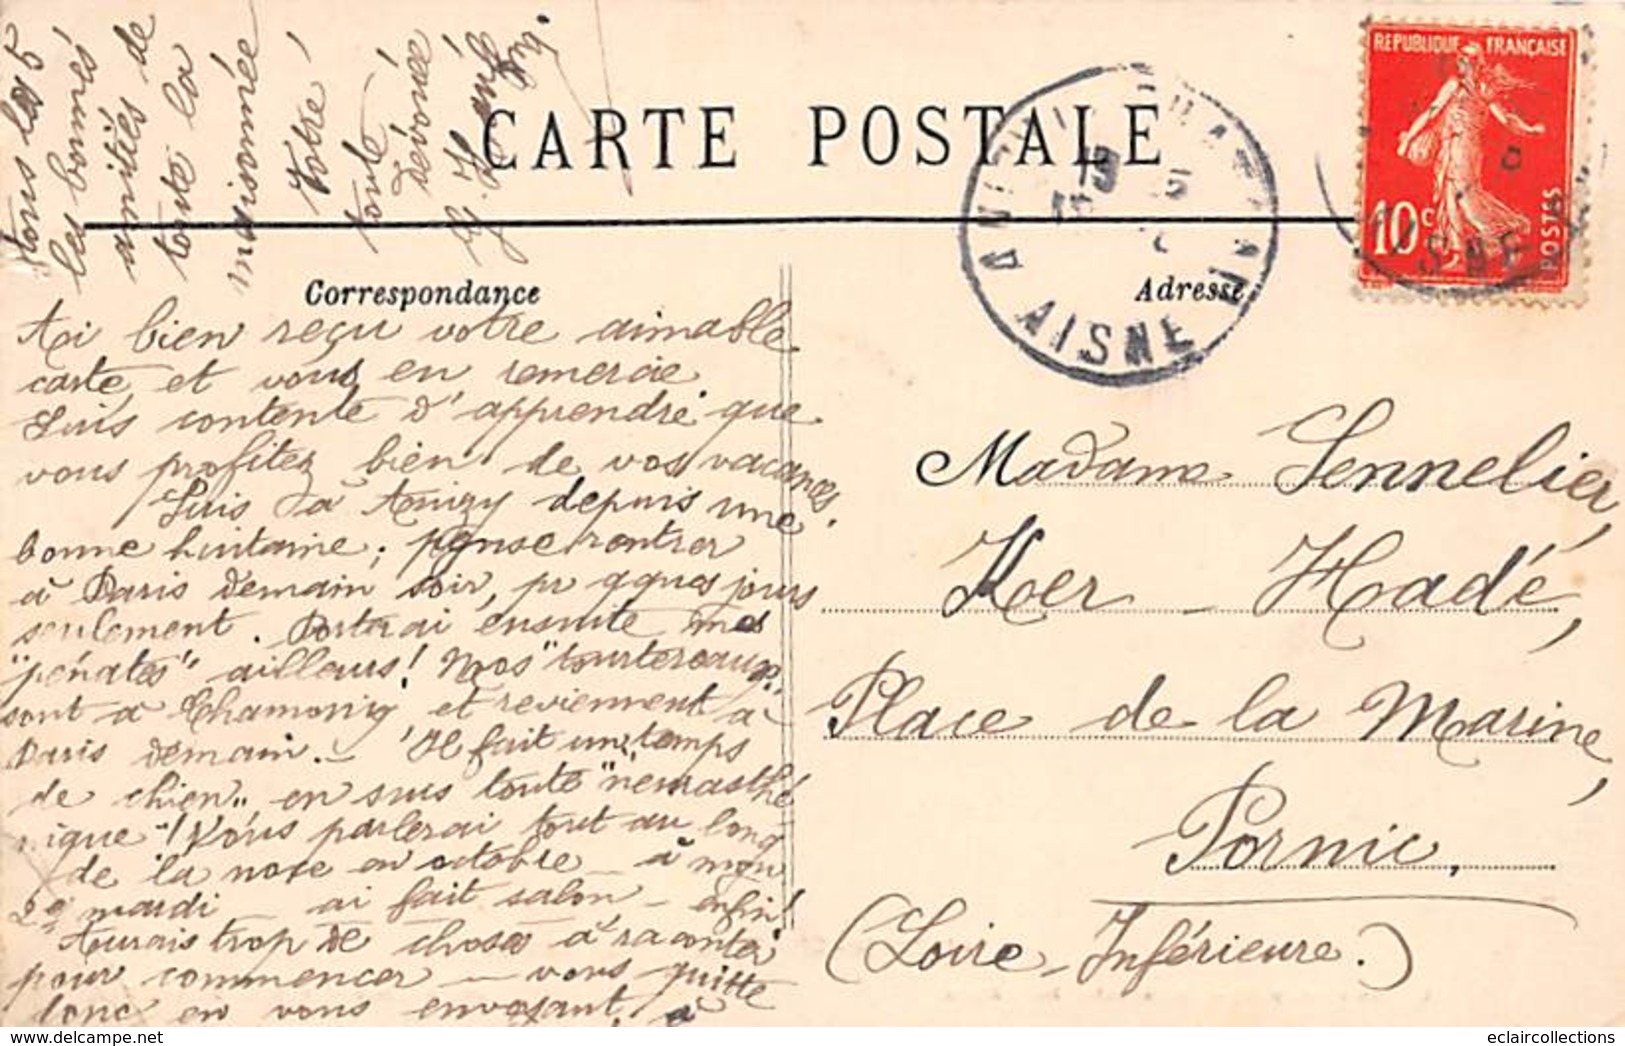 CARTE POSTALE
Correspondance
Adresse
REPUBLIQUE FRANÇAISE
10c
POSTES
AISNE
AISNE
Ai bien reçu votre aimable
carte, et vous en remercie.
Suis contente d'apprendre que
vous profitez bien de vos vacances.
Suis à Anizy depuis une
bonne huitaine; pense rentrer
à Paris demain soir, pr qques jours
seulement. Porterai ensuite mes
"pénates" ailleurs! Nos "tourtereaux"
sont à Chamonix et reviennent à
Paris demain. - Il fait un "temps
de chien" en suis toute "neurasthé
nique"! Vous parlerai tout au long
de la noce en octobre - à mon
2e mardi - ai fait salon - enfin!
Aurais trop de choses à raconter
pour commencer - vous quitte
donc en vous envoyant, à
tous les 5
les bonnes
amitiés de
toute la
maisonnée
Votre
toute
dévouée
Madame Sennelier,
Ker-Hadé,
Place de la Marine,
Pornic,
(Loire-Inférieure.)
eclaircollections